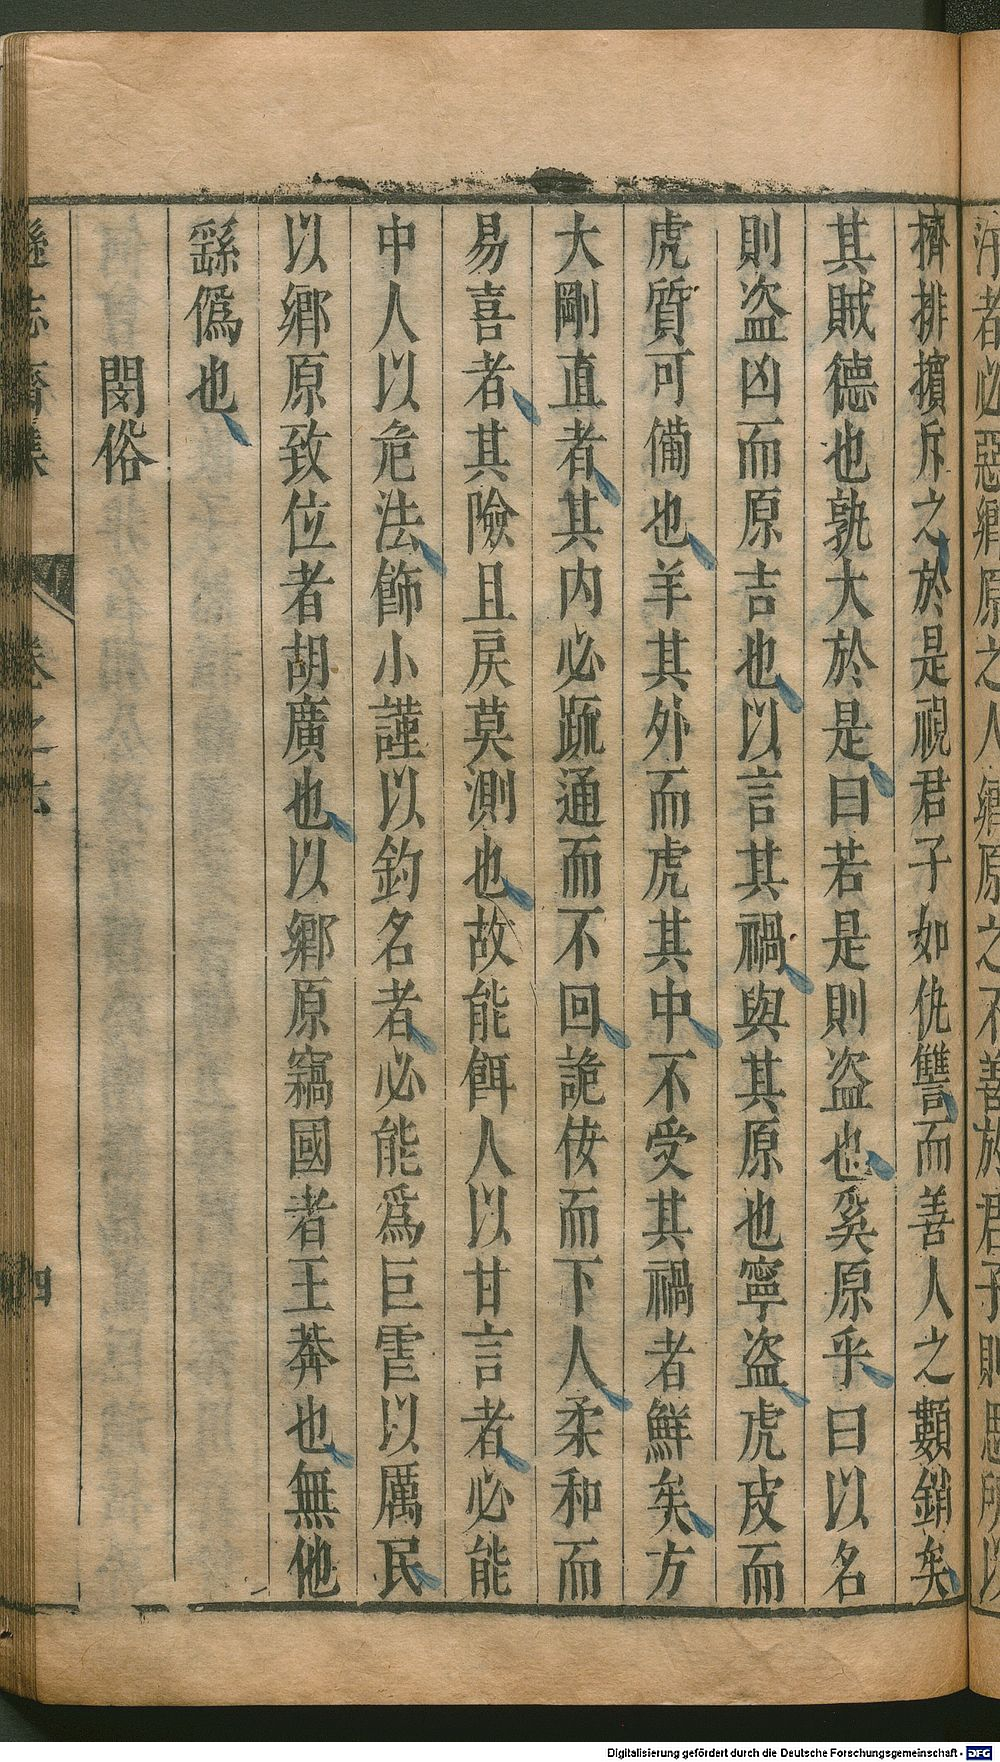 擠排擯斥之於是視君子如仇讐而善人之纇銷矣
其賊德也孰大於是曰若是則盜也奚原乎曰以名
則盜凶而原吉也以言其禍與其原也寧盜虎皮而
虎質可備也羊其外而虎其中不受其禍者鮮矣方
大剛直者其内必踈通而不回詭佞而下人柔和而
易喜者其險且戾莫測也故能餌人以甘言者必能
中人以危法飾小謹以釣名者必能爲巨䨥以厲民
以鄉原致位者胡廣也以鄉原竊國者王莽也無他
繇僞也
閔俗
遜志齋集
卷之六
四
Digitalisierung gefördert durch die Deutsche Forschungsgemeinschaft - DFG